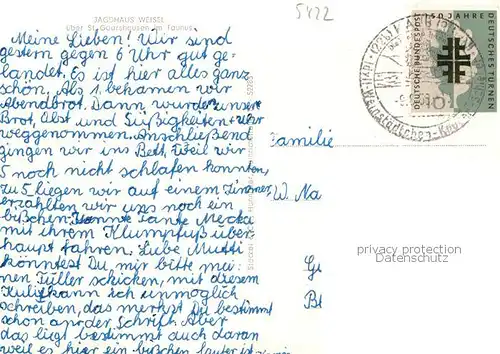 JAGDHAUS WEISEL
über St. Goarshausen im Taunus
5422
Meine Lieben! Wir sind
gestern gegen 6 Uhr gut ge-
landet. Es ist hier alles ganz
schön. Als 1. bekamen wir
Abendbrot. Dann wurden unsre
Brot, Obst und Süßigkeiten
weggenommen. Anschließend
gingen wir ins Bett, weil wir
5 noch nicht schlafen konnten,
zu 5 liegen wir auf einem Zimmer
erzählten wir uns noch ein
bißchen. Konnte Tante Mecka
mit ihrem Klumpfuß über
haupt fahren. Liebe Mutti
könntest Du mir bitte mei
nen Füller schicken, mit diesem
Kuli kann ich unmöglich
schreiben, das merkst Du bestimmt
schon an der Schrift. Aber
das liegt bestimmt auch daran
weil es hier ein bißchen lauter ist
Familie
W. Na
150 JAHRE
DEUTSCHES TURNEN
DEUTSCHE BUNDESPOST
10
privacy protection
Datenschutz